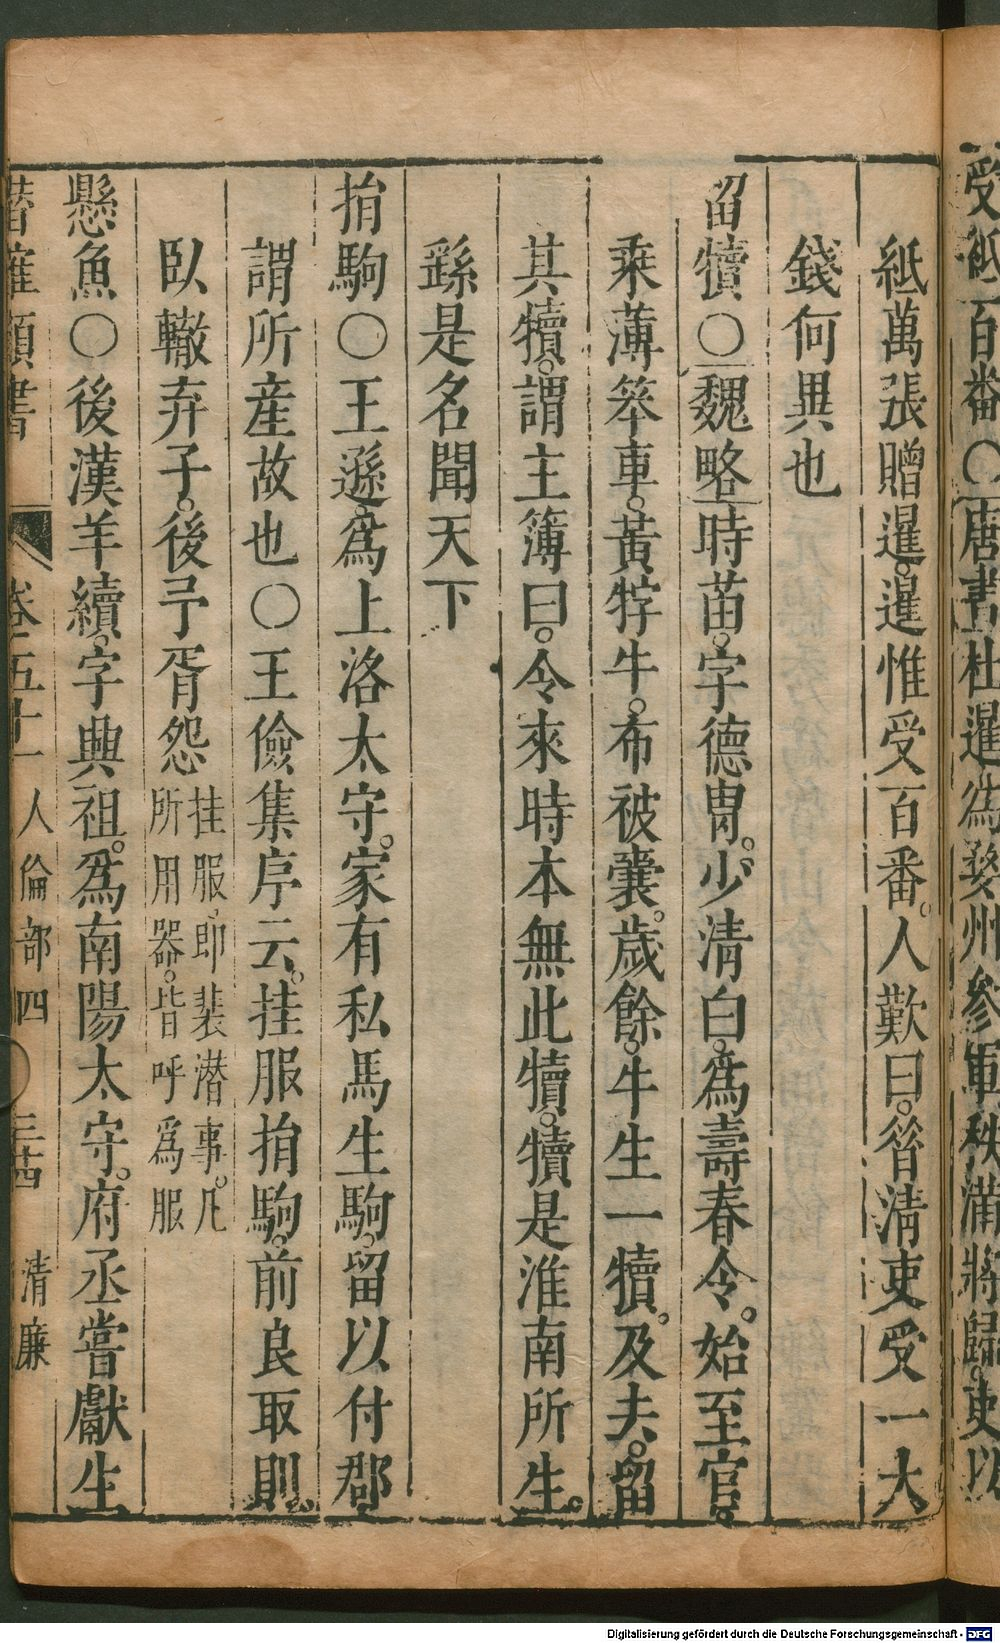 受紙一百番○唐書杜暹為婺州參軍秩滿將歸吏以
紙萬張贈暹暹惟受百番人歎曰昝清吏受一大
錢何異也
留犢○魏略時苗字德冑少清白為壽春令始至官
乘薄笨車黃牸牛布被囊歲餘牛生一犢及去留
其犢謂主簿曰令來時本無此犢犢是淮南所生
繇是名聞天下
捐駒○王遜為上洛太守家有私馬生駒留以付郡
謂所産故也○王儉集序云挂服捐駒前良取則
臥轍弃子後予胥怨挂服即裴潜事凡
所用器皆呼為服
懸魚○後漢羊續字興祖為南陽太守府丞嘗獻生
潛確類書 卷五十一 人倫部四 三古 清廉
Digitalisierung gefördert durch die Deutsche Forschungsgemeinschaft - DFG